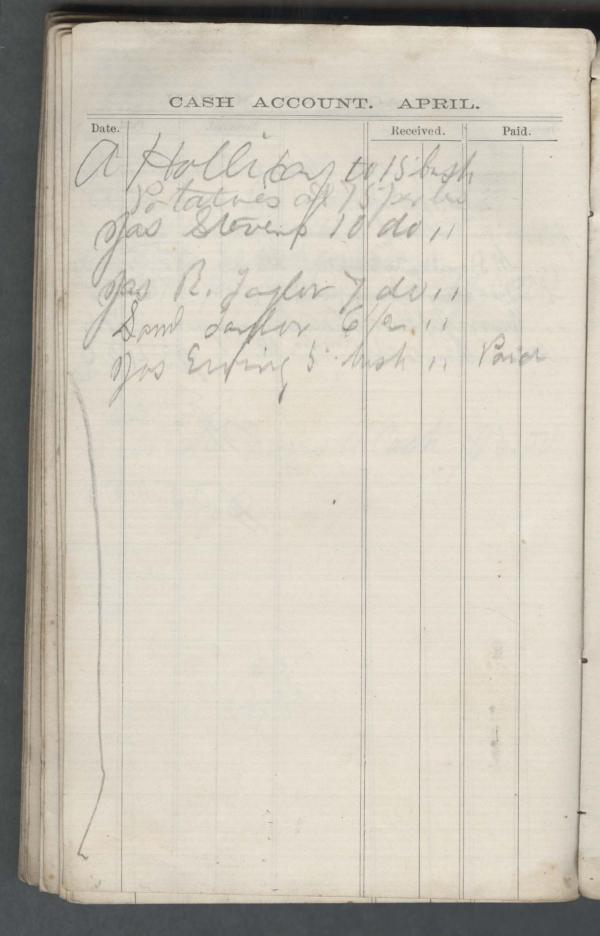 CASH ACCOUNT. APRIL.
Date. Received. Paid.
A Holliday to 15 bush
Potatoes at 75 per bu
Jas Stevens 10 do "
Jas R. Taylor 7 do "
Saml Taylor 6 "
Jos Ewing 5 bush " Paid